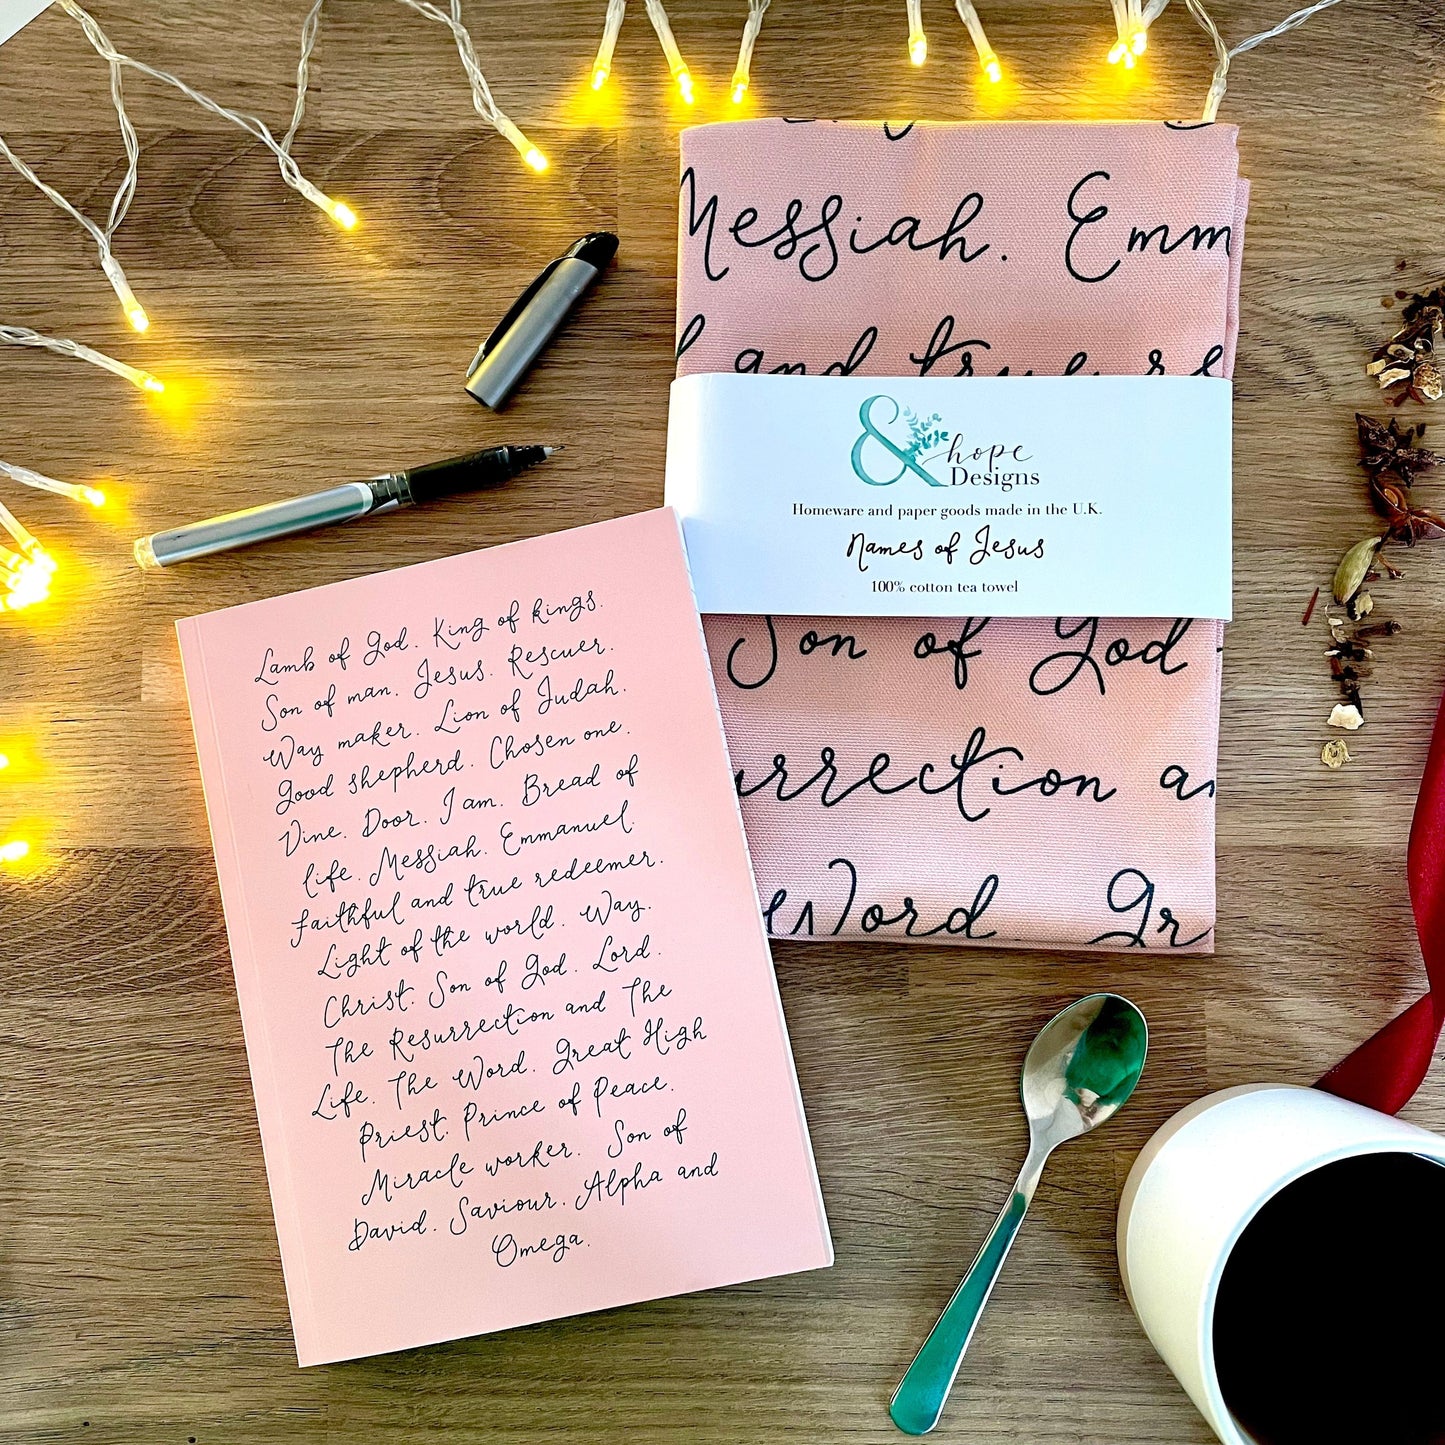 Messiah. Emm
and true res
& hope
Designs
Homeware and paper goods made in the U.K.
Names of Jesus
100% cotton tea towel
Son of God
urrection a
Word Gr
Lamb of God. King of kings.
Son of man. Jesus. Rescuer.
Way maker. Lion of Judah.
Good shepherd. Chosen one.
Vine. Door. I am. Bread of
life. Messiah. Emmanuel.
Faithful and true redeemer.
Light of the world. Way.
Christ. Son of God. Lord.
The Resurrection and The
Life. The Word. Great High
Priest. Prince of Peace.
Miracle worker. Son of
David. Saviour. Alpha and
Omega.